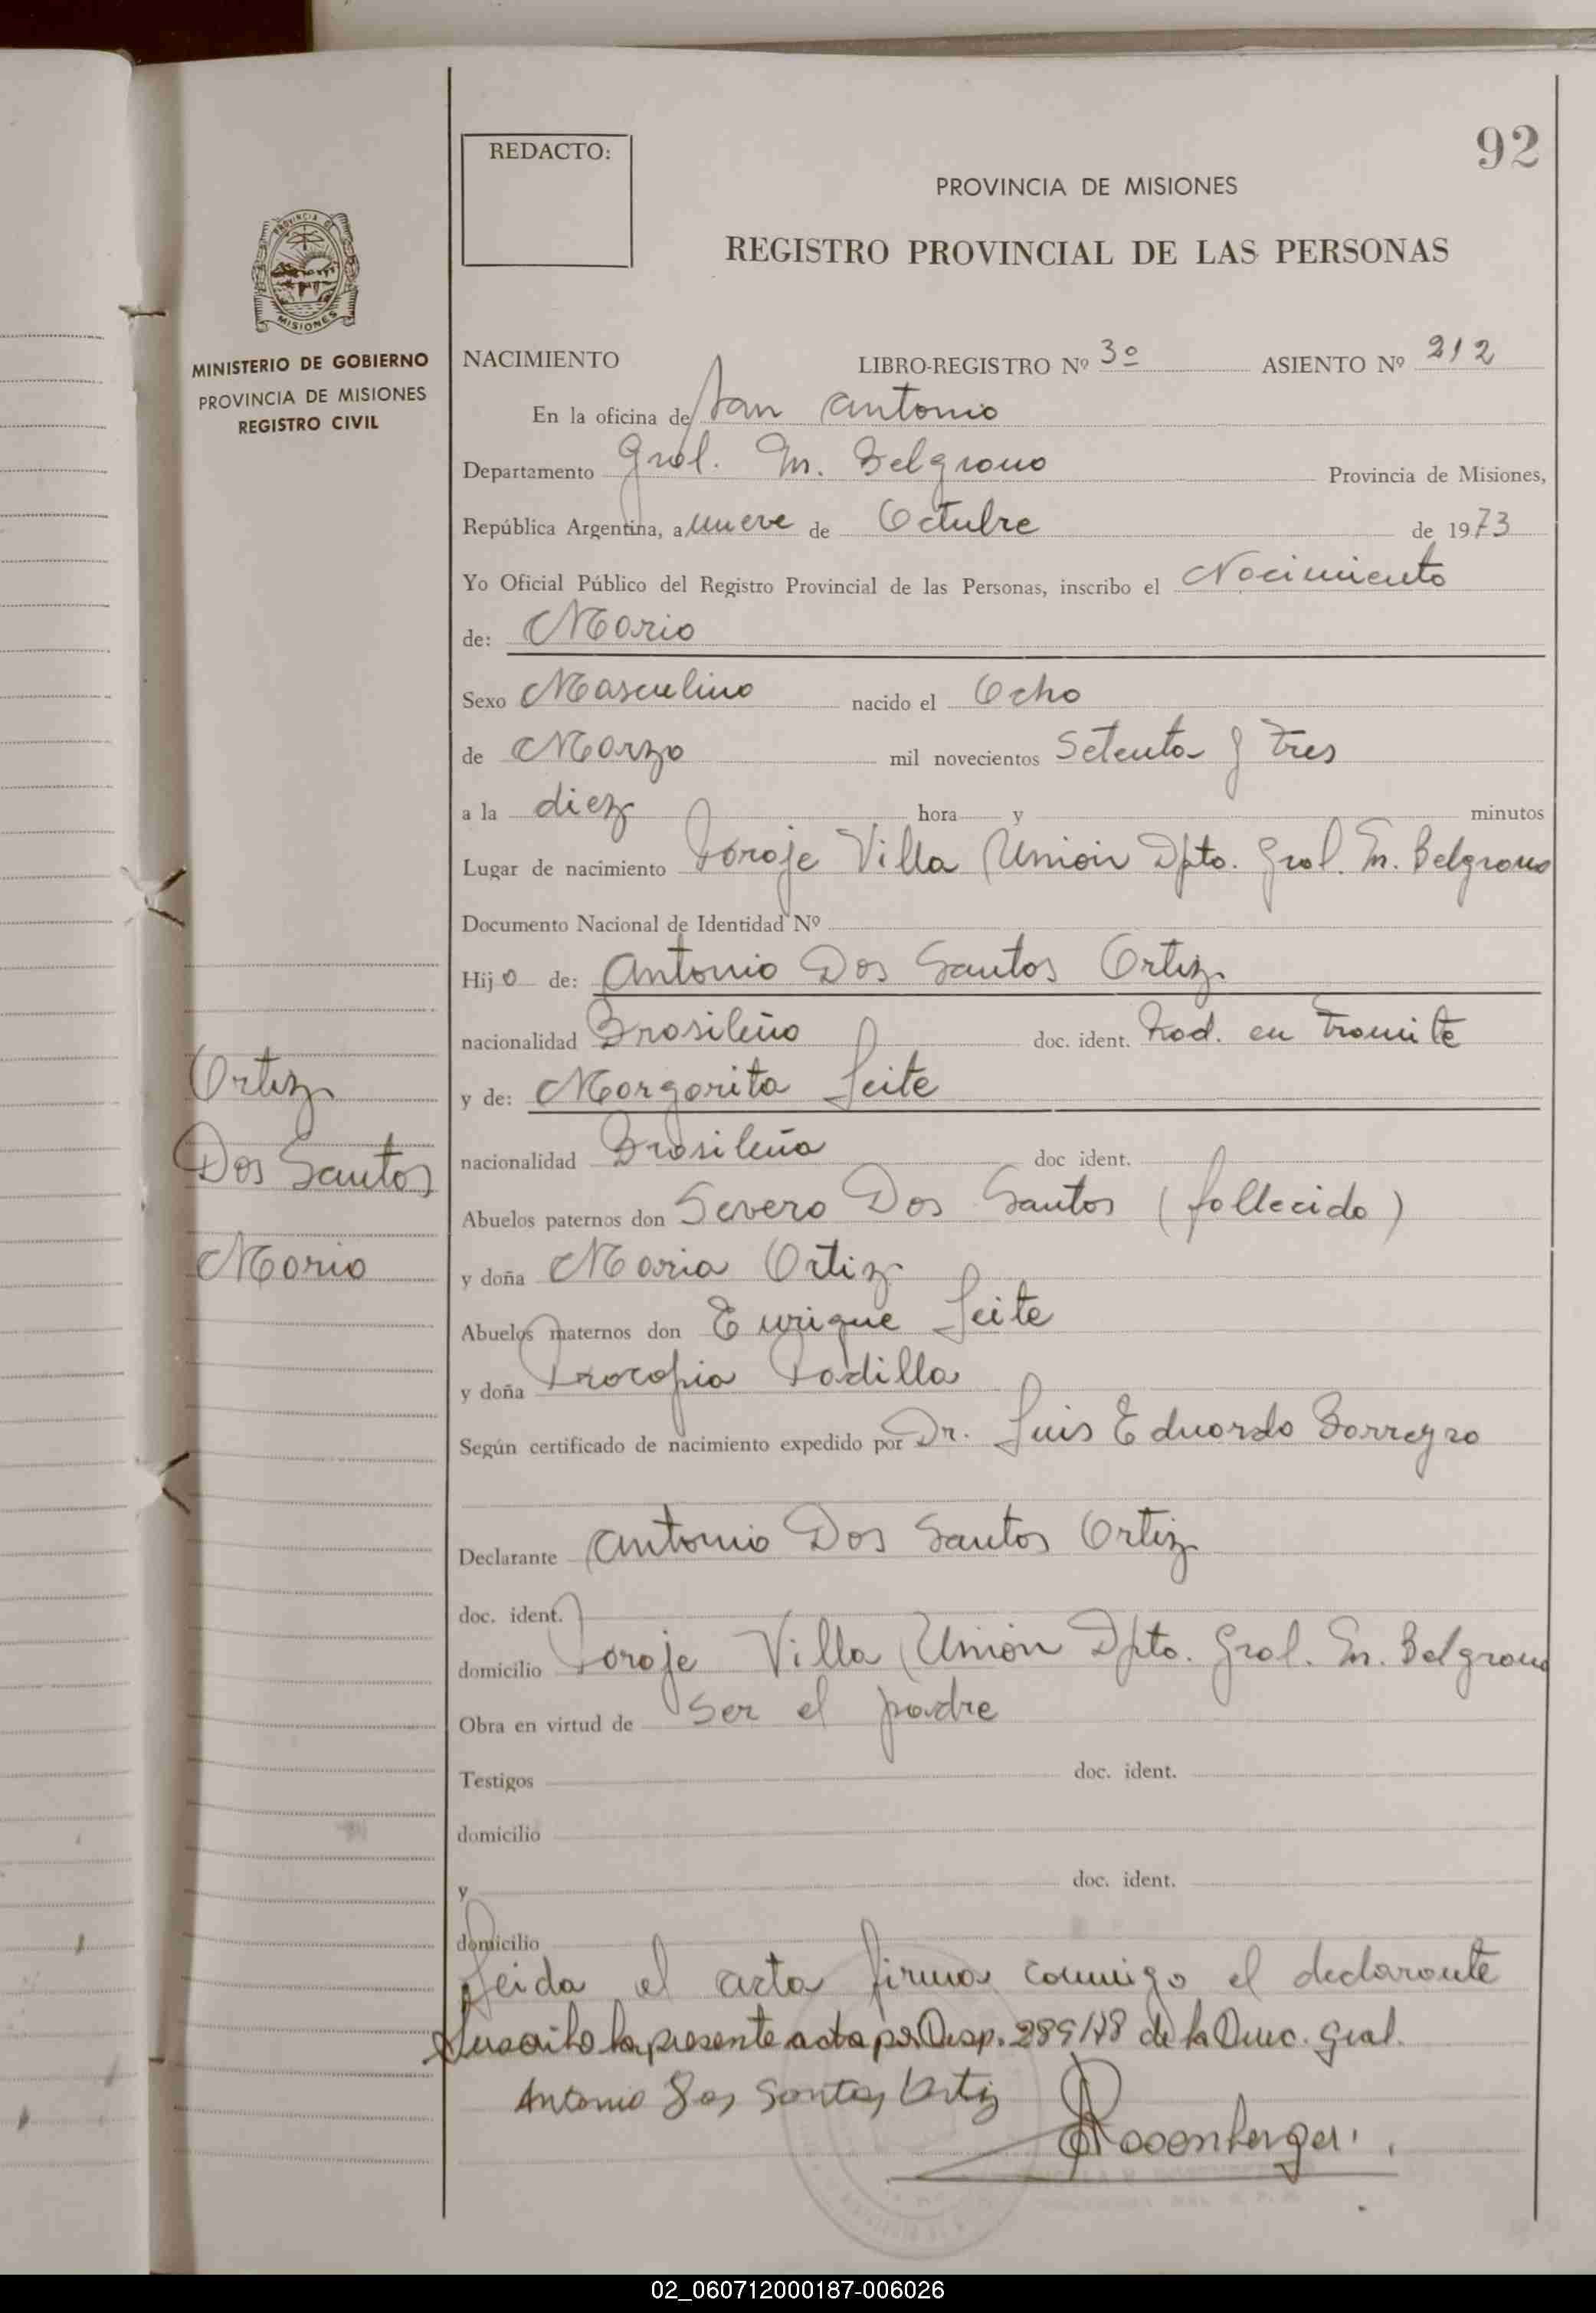 92
REDACTO:
PROVINCIA DE MISIONES
REGISTRO PROVINCIAL DE LAS PERSONAS
PROVINCIA DE
MISIONES
MINISTERIO DE GOBIERNO
PROVINCIA DE MISIONES
REGISTRO CIVIL
NACIMIENTO LIBRO-REGISTRO Nº 3º ASIENTO Nº 212
En la oficina de San Antonio
Departamento Gral. M. Belgrano Provincia de Misiones,
República Argentina, a nueve de Octubre de 1973
Yo Oficial Público del Registro Provincial de las Personas, inscribo el Nacimiento
de: Mario
Sexo Masculino nacido el Ocho
de Marzo mil novecientos Setenta y Tres
a la diez hora y minutos
Lugar de nacimiento Paraje Villa Unión Dpto. Gral. M. Belgrano
Documento Nacional de Identidad Nº
Hijo de: Antonio Dos Santos Ortiz
nacionalidad Brasileño doc. ident. Rad. en Tramite
y de: Margarita Leite
nacionalidad Brasileña doc ident.
Abuelos paternos don Severo Dos Santos (fallecido)
y doña Maria Ortiz
Abuelos maternos don Enrique Leite
y doña Procopia Padilla
Según certificado de nacimiento expedido por Dr. Luis Eduardo Borreyro
Declarante Antonio Dos Santos Ortiz
doc. ident.
domicilio Paraje Villa Unión Dpto. Gral. M. Belgrano
Obra en virtud de Ser el padre
Testigos doc. ident.
domicilio
y doc. ident.
domicilio
Leida el acta firma conmigo el declarante
Suscribo la presente acta por Disp. 289/78 de la Direc. Gral.
Antonio Dos Santos Ortiz
Rosenberger
Ortiz
Dos Santos
Mario
02_060712000187-006026